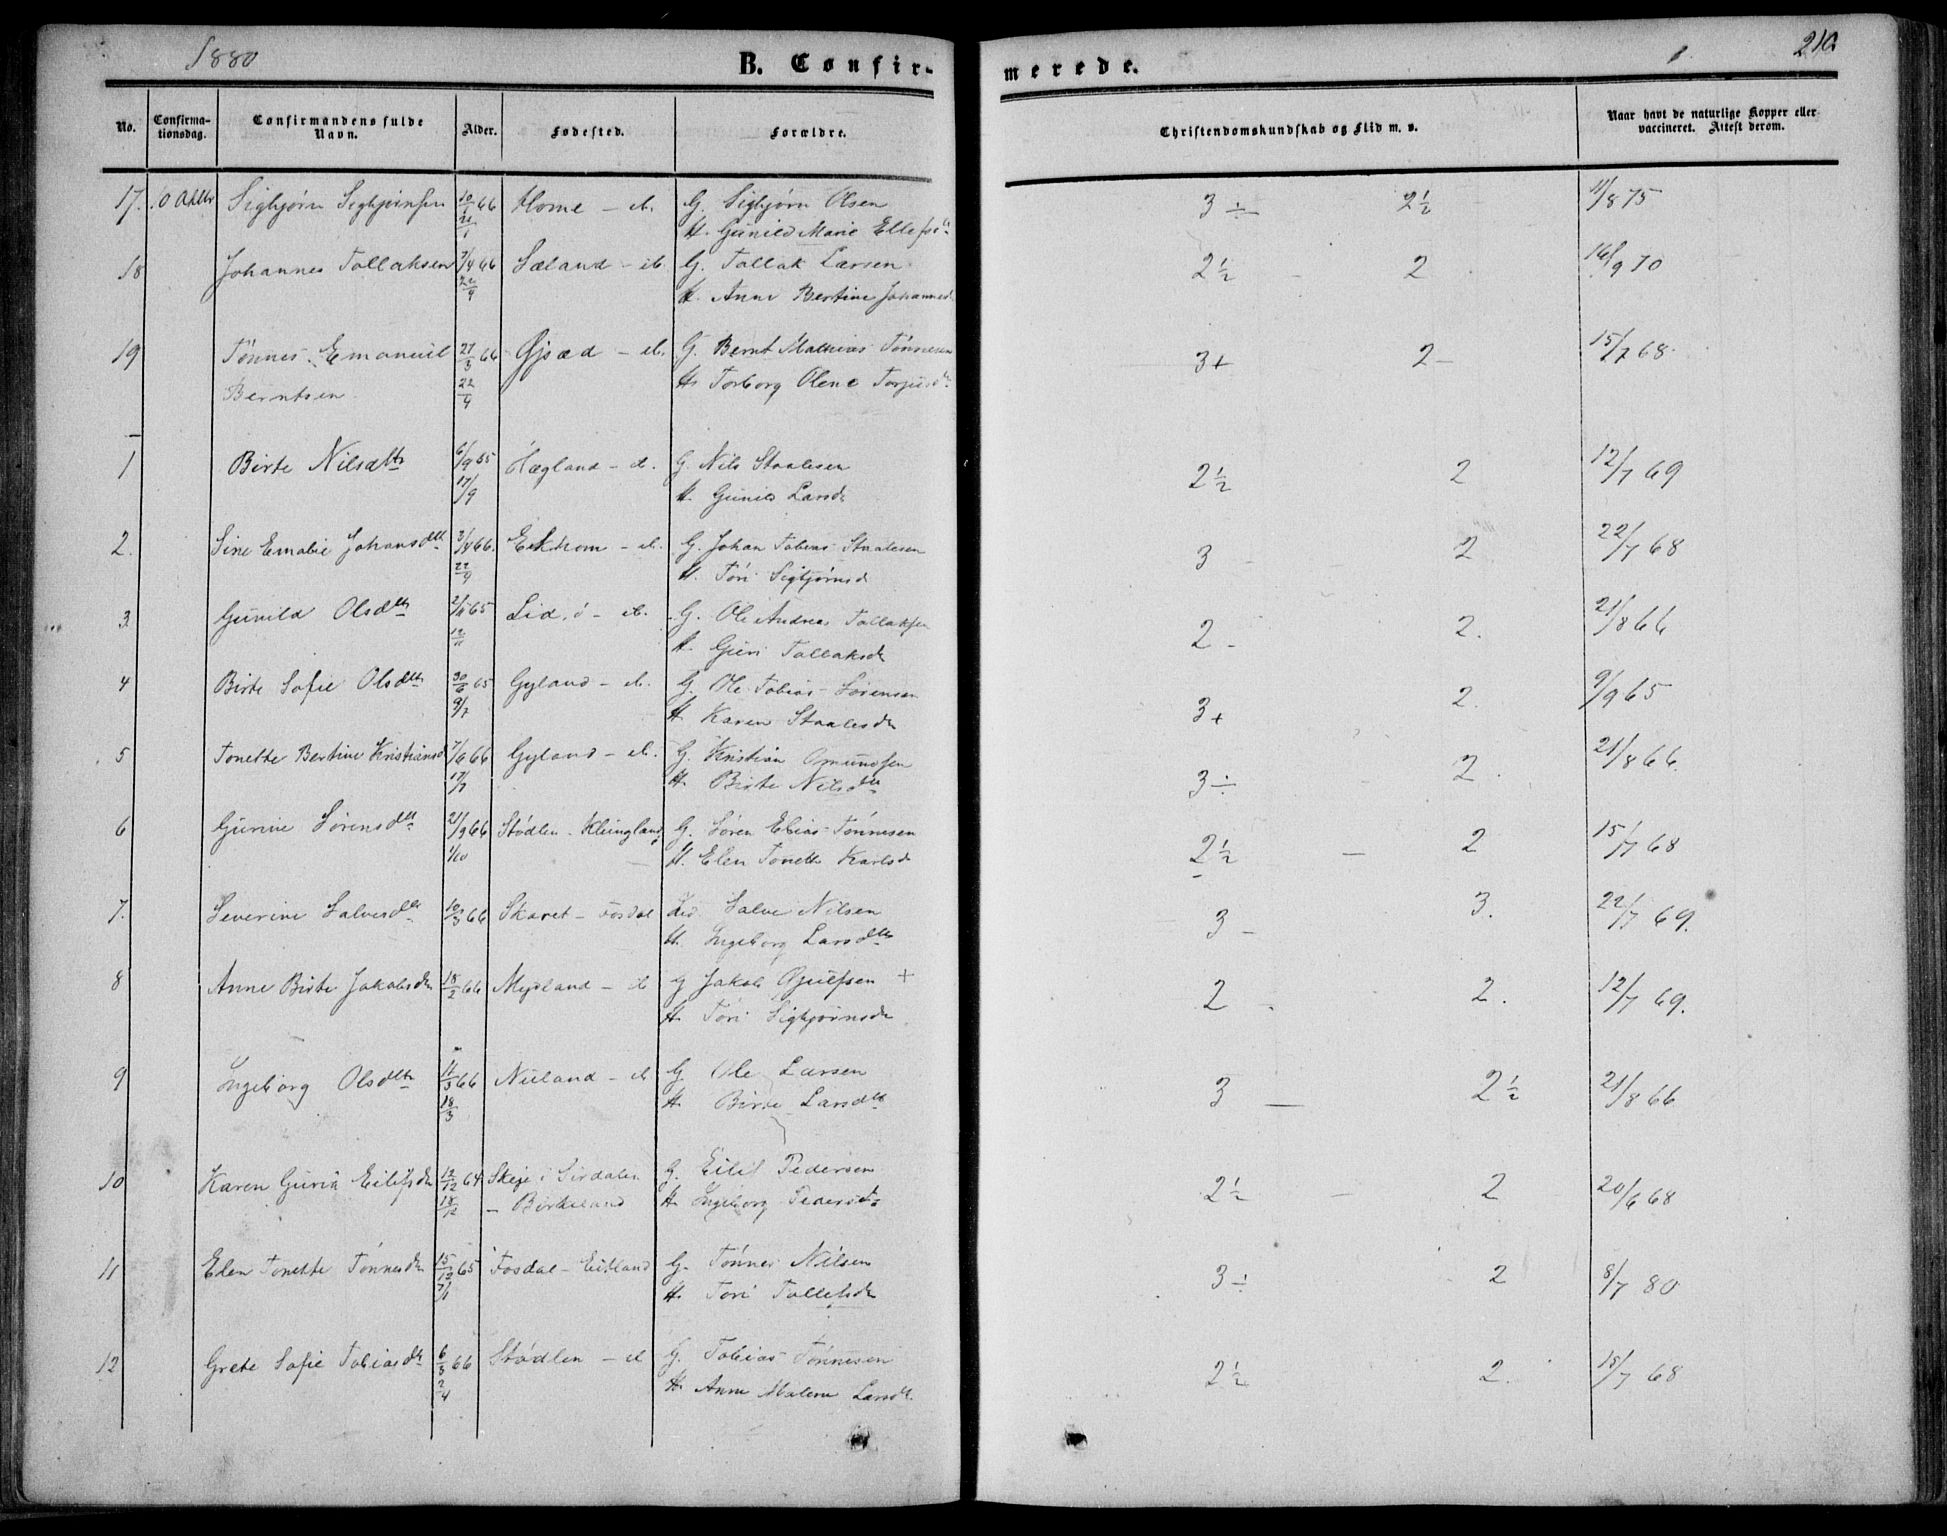 1880
B. Confir-
merede.
210.
No.
Confirma-
tionsdag.
Confirmandens fulde
Navn.
Alder.
Fødested.
Forældre.
Christendomskundskab og Flid m. v.
Naar havt de naturlige Kopper eller
vaccineret. Attest derom.
17. Sigbjørn Sigbjørnsen 10/1 66 Home - G. Sigbjørn Olsen 3 ÷ 2½ 11/8 75
H. Gunild Marie
18 Johannes Tollaksen 7/4 66 Sæland - G. Tollak Larsen 2½ - 2 16/9 70
22/4 H. Anne Bertine Johannesd
19 Tønnes Emanuel 27/3 66 Gjsæd - G. Bernt Mathias Tønnesen 3+ 2- 15/7 68
Berntsen 22/4 H. Torborg Olene
1 Birte Nilsdtr 6/9 65 Hægland - G. Nils Staalesen 2½ 2 12/7 69
17/9 H. Gunild Larsd
2. Sine Emalie Johansdtr 3/4 66. Eikhom - G. Johan Tobias Staalesen 3 - 2 22/7 68
22/4 H. Tøri Sigbjørnsd
3 Gunild Olsdtr 2/11 65 Lid, - G. Ole Andreas Tollaksen 2 - 2. 21/8 66
12/11 H. Guri Tollaksd
4 Birte Sofie Olsdtr 30/6 65 Gyland - G. Ole Tobias Sørensen 3+ 2. 9/9 65
9/7 H. Karen Staalesd
5 Tonette Bertine Kristiansd 7/6 66 Gyland - G. Kristian Omundsen 3÷ 2. 21/8 66.
17/7 H. Birte Nilsdtr
6 Gurine Sørensdtr 21/9 66 Stødlen - Kleingland G. Søren Elias Tønnesen 2½ - 2 15/7 68
1/10 H. Elen Tonette Karlsd
7. Severine Salvesdtr 10/3 66 Skaret - Fosdal Salve Nilsen 3 - 3. 22/7 69.
H. Ingeborg Larsdtr
8 Anne Birte Jakobsdtr 18/2 66 Mysland - G Jakob Gjulfsen + 2 - 2. 12/7 69.
H. Tøri Sigbjørnsd
9 Ingeborg Olsdtr 11/3 66 Nuland - G Ole Larsen 3 — 2½ 21/8 66
18/3 H. Birte Larsdtr
10 Karen Guria Eilifsdtr 12/12 64 Skeje i Sirdalen G. Eilif Pedersen 2½ - 2 20/6 68
18/12 - Birkeland H. Ingeborg Pedersdtr
11 Elen Tonette Tønnesdtr 15/12 65 Fosdal - Eitland G. Tønnes Nilsen 3÷ 2 8/7 80
7/1 H. Tøri Tollefsdtr
12 Grete Sofie Tobiasdtr 6/3 66 Stødlen - G. Tobias Tønnesen 2½ 2. 15/7 68
2/4 H. Anne Malene Larsdtr